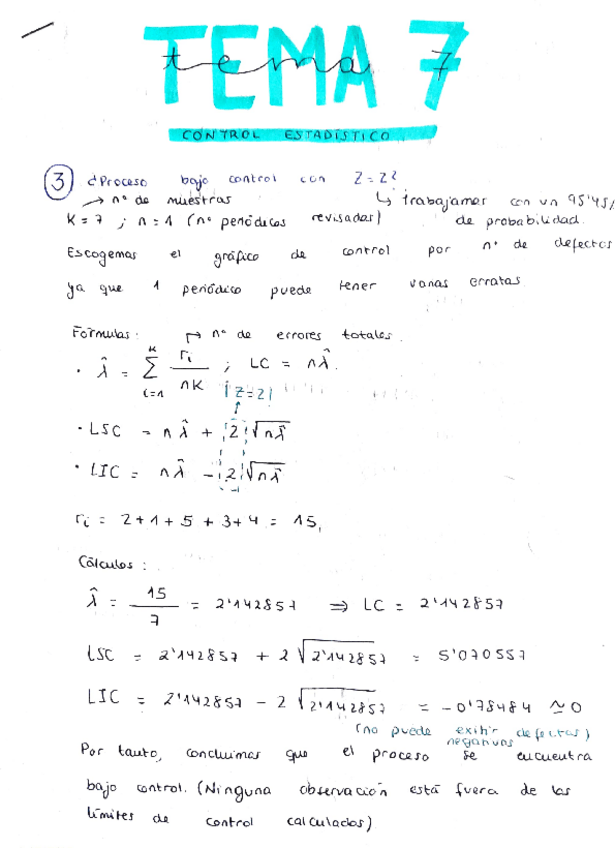 TEMA 7
tema 7
CONTROL ESTADÍSTICO
③ ¿Proceso bajo control con Z=2?
→ nº de muestras ↳ trabajamos con un 95'45%
K=7 ; n=1 (nº periódicos revisados) de probabilidad.
Escogemos el gráfico de control por nº de defectos
ya que 1 periódico puede tener varias erratas
Fórmulas: → nº de errores totales.
· λ̂ = Σ (i=1, K) ri / nK ; LC = nλ̂.
¡Z=2!
· LSC = nλ̂ + 2√nλ̂
· LIC = nλ̂ - 2√nλ̂
ri = 2+1+5+3+4 = 15,
Cálculos:
λ̂ = 15/7 = 2'142857 ⇒ LC = 2'142857
LSC = 2'142857 + 2√2'142857 = 5'070557
LIC = 2'142857 - 2√2'142857 = -0'78484 ≃ 0
(no puede existir defectos)
negativos
Por tanto, concluimos que el proceso se encuentra
bajo control. (Ninguna observación está fuera de los
límites de control calculados)